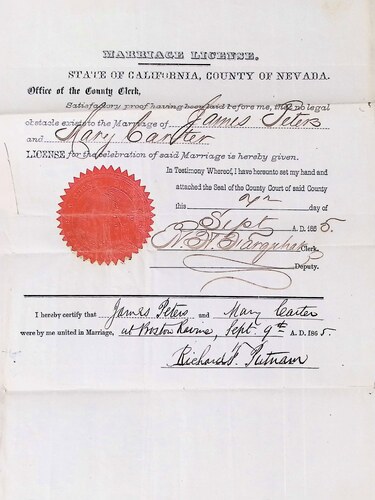 MARRIAGE LICENSE.
STATE OF CALIFORNIA, COUNTY OF NEVADA.
Office of the County Clerk,
Satisfactory proof having been laid before me, that no legal
obstacle exists to the Marriage of James Peters
and Mary Carter
LICENSE for the celebration of said Marriage is hereby given.
In Testimony Whereof, I have hereunto set my hand and
attached the Seal of the County Court of said County
this day of
Sept A. D. 1865.
Clerk.
Deputy.
I hereby certify that James Peters and Mary Carter
were by me united in Marriage, at Boston Ravine, Sept. 9th A. D. 1865.
Richard F. Putnam